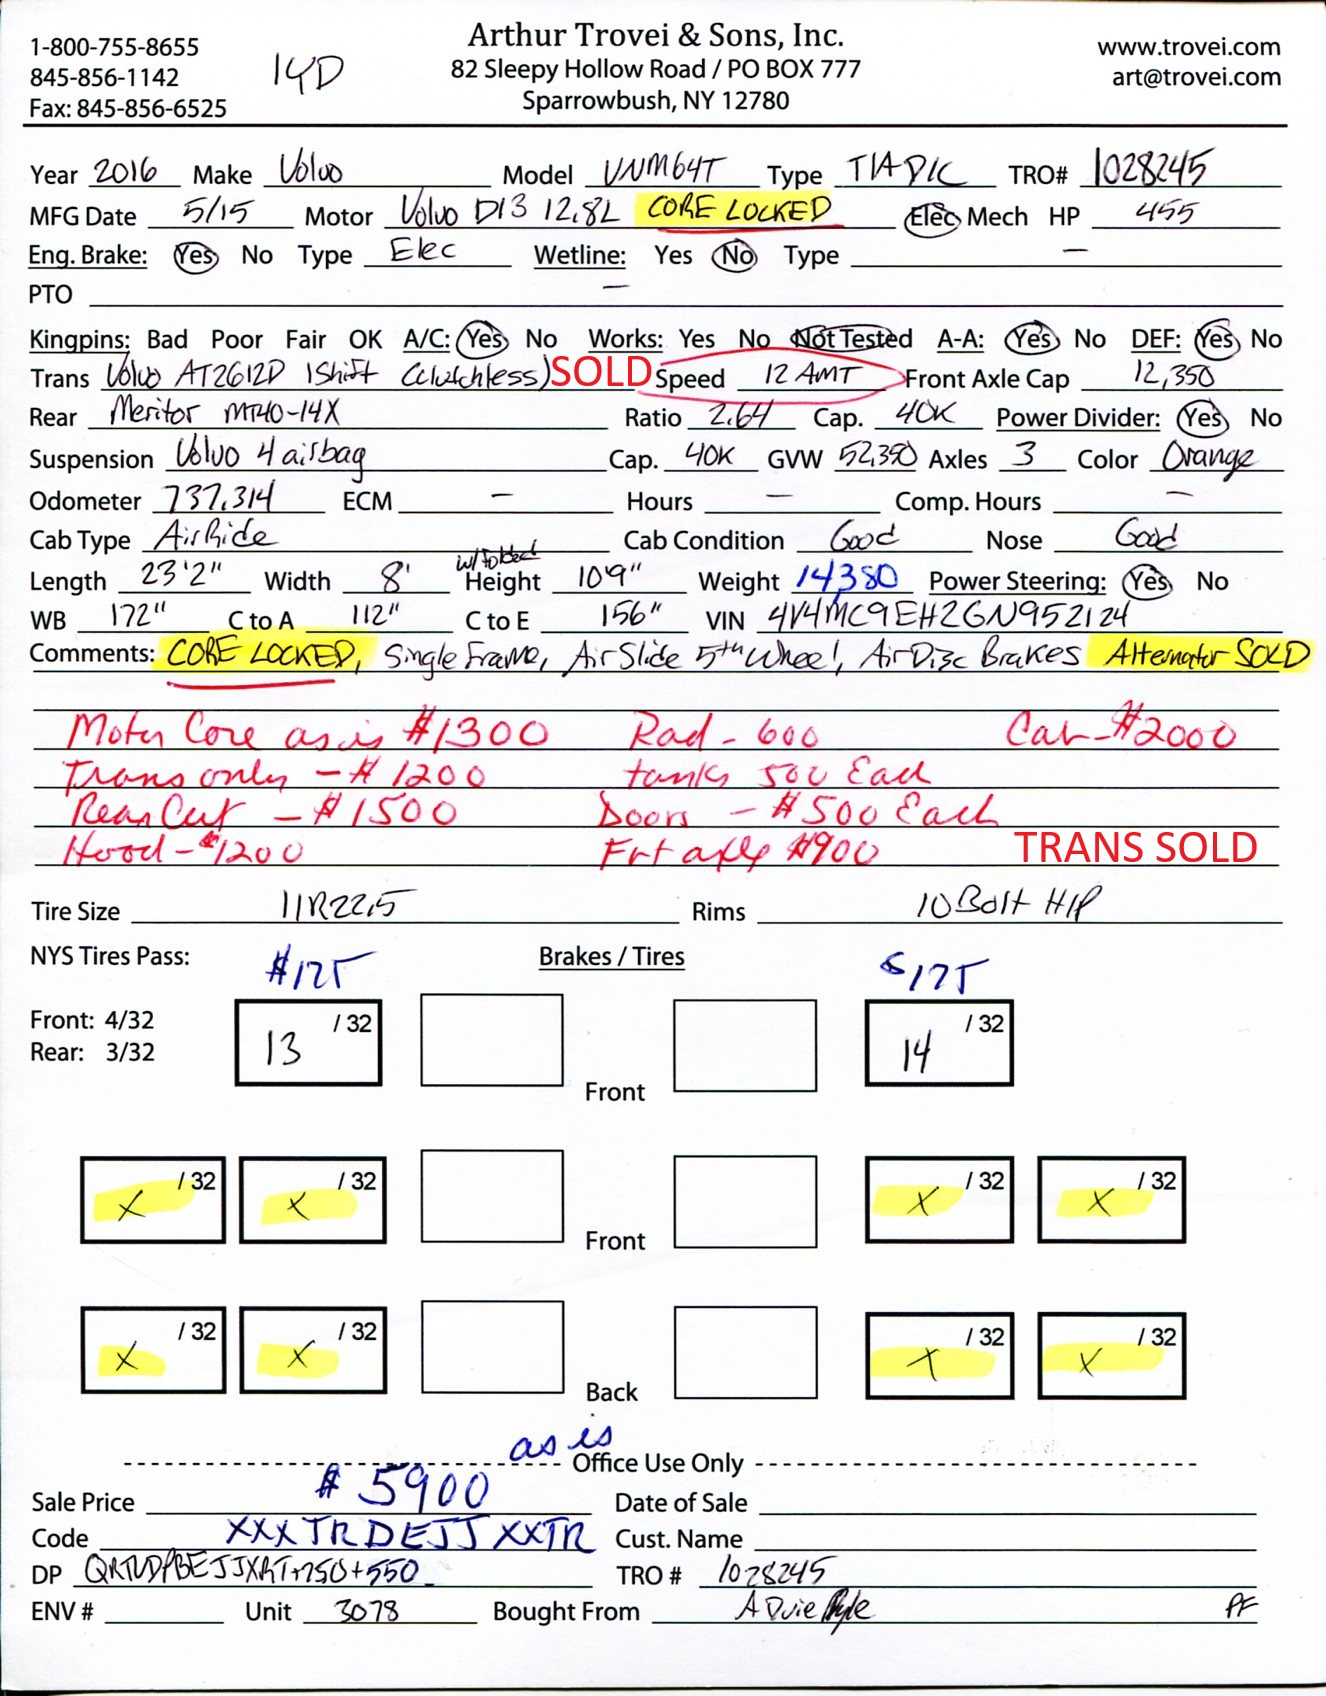 1-800-755-8655
845-856-1142
Fax: 845-856-6525
Arthur Trovei & Sons, Inc.
82 Sleepy Hollow Road / PO BOX 777
Sparrowbush, NY 12780
www.trovei.com
art@trovei.com
Year 2016 Make Volvo Model VNM64T Type T/A D/C TRO# 1028245
MFG Date 5/15 Motor Volvo D13 12.8L CORE LOCKED Elec Mech HP 455
Eng. Brake: Yes No Type Elec Wetline: Yes No Type —
PTO —
Kingpins: Bad Poor Fair OK A/C: Yes No Works: Yes No Not Tested A-A: Yes No DEF: Yes No
Trans Volvo AT2612D IShift (clutchless) SOLD Speed 12 AMT Front Axle Cap 12,350
Rear Meritor MT40-14X Ratio 2.64 Cap. 40K Power Divider: Yes No
Suspension Volvo 4 airbag Cap. 40K GVW 52,350 Axles 3 Color Orange
Odometer 737,314 ECM — Hours — Comp. Hours —
Cab Type AirRide Cab Condition Good Nose Good
Length 23'2" Width 8' w/Folded Height 10'9" Weight 14,380 Power Steering: Yes No
WB 172" C to A 112" C to E 156" VIN 4V4MC9EH2GN952124
Comments: CORE LOCKED, Single Frame, Air Slide 5th Wheel, Air Disc Brakes Alternator SOLD
Motor Core as is $1300 Rad - 600 Cab - $2000
Trans only - $1200 tanks 500 Each
Rear Cut - $1500 Doors - $500 Each
Hood - $1200 Frt axle $900 TRANS SOLD
Tire Size 11R22.5 Rims 10 Bolt H/P
NYS Tires Pass: $175 Brakes / Tires $175
Front: 4/32
Rear: 3/32
13 /32 14 /32
Front
X /32 X /32 X /32 X /32
Front
X /32 X /32 X /32 X /32
Back
as is
Office Use Only
Sale Price $5900 Date of Sale
Code XXXTRDEJJXXTR Cust. Name
DP TRO # 1028245
ENV # Unit 3078 Bought From PF